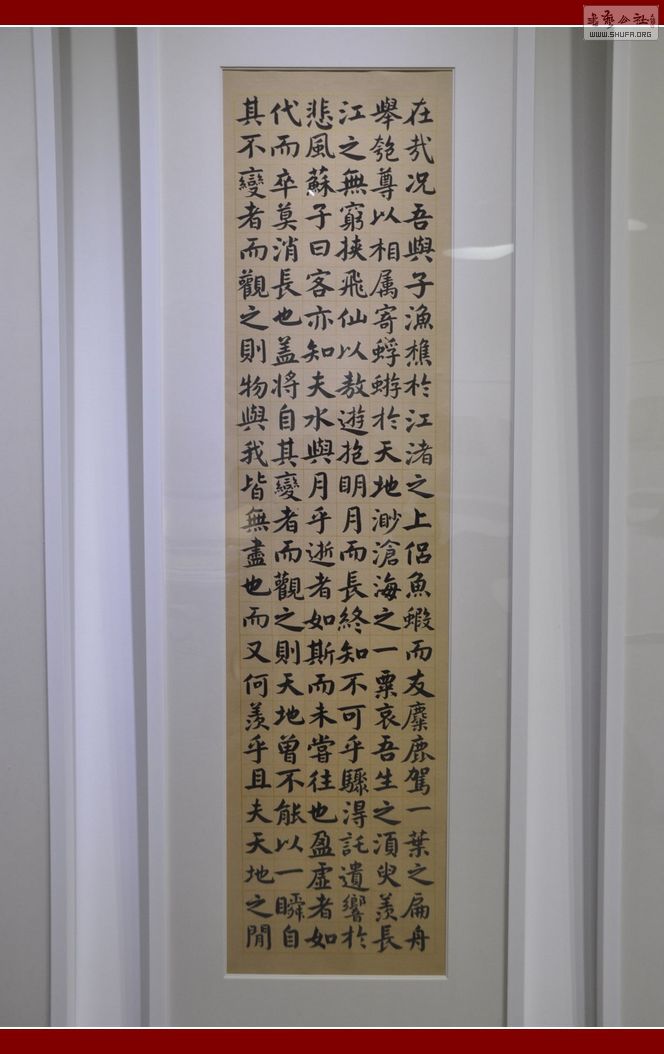 在哉况吾與子漁樵於江渚之上侶魚蝦而友麋鹿駕一葉之扁舟
舉匏尊以相属寄蜉蝣於天地渺滄海之一粟哀吾生之須臾羨長
江之無窮挟飛仙以敖遊抱明月而長終知不可乎驟得託遺響於
悲風蘇子曰客亦知夫水與月乎逝者如斯而未嘗往也盈虚者如
代而卒莫消長也盖将自其變者而觀之則天地曾不能以一瞬自
其不變者而觀之則物與我皆無盡也而又何羨乎且夫天地之閒
WWW.SHUFA.ORG